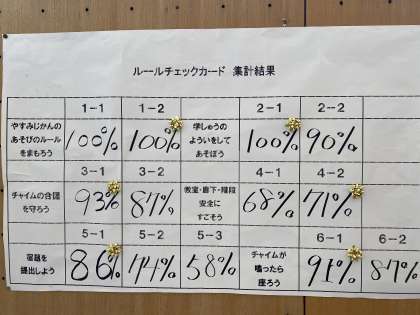 ルールチェックカード 集計結果
1-1 1-2 2-1 2-2
やすみじかんの
あそびのルール
をまもろう
100% 100%
学しゅうの
よういをして
あそぼう
100% 90%
3-1 3-2 4-1 4-2
チャイムの合図
を守ろう
93% 87%
教室・廊下・階段
安全に
すごそう
68% 71%
5-1 5-2 5-3 6-1 6-2
宿題を
提出しよう
86% 74% 58%
チャイムが
鳴ったら
座ろう
91% 87%